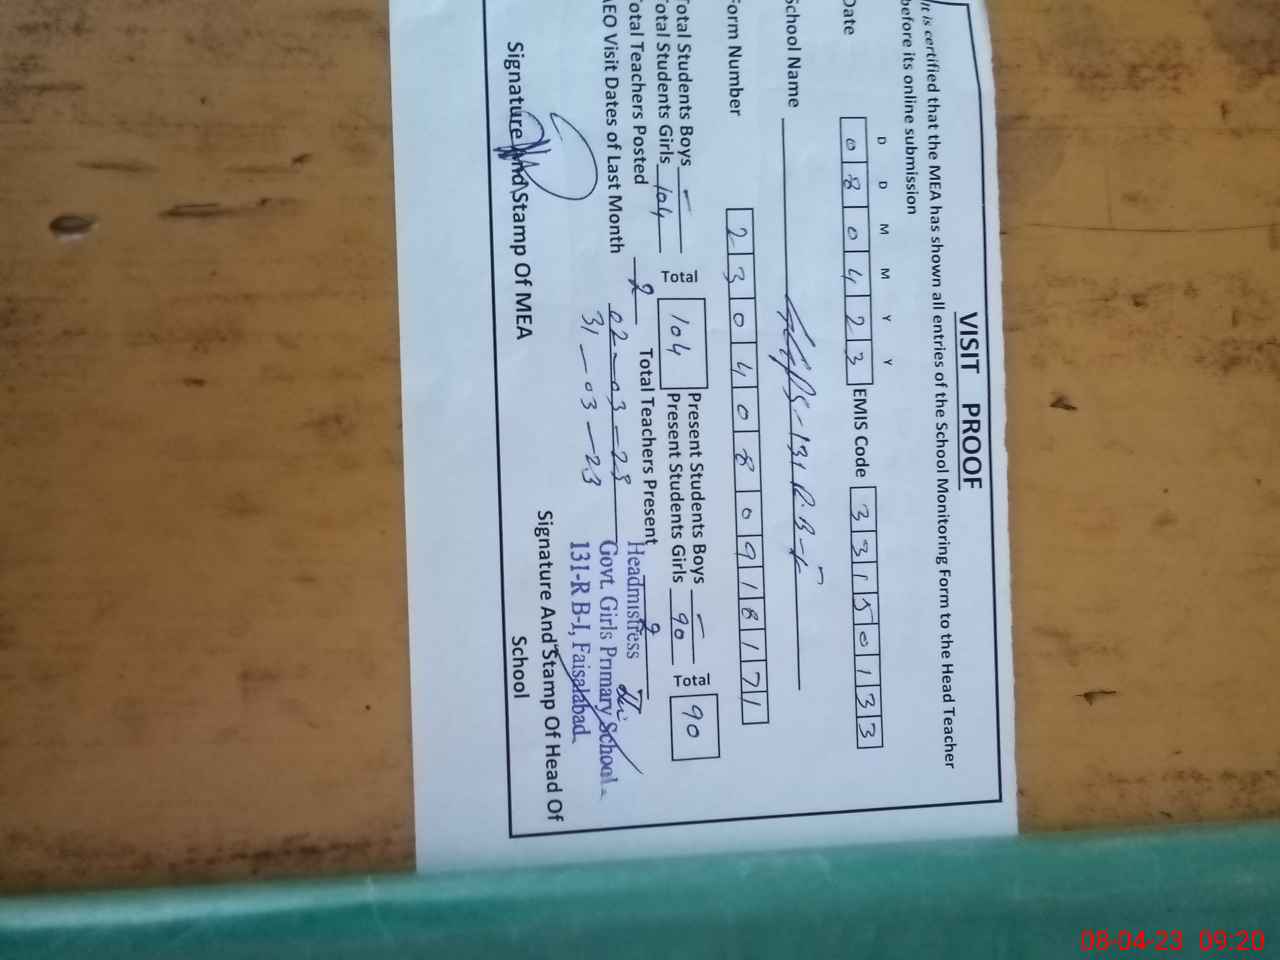 VISIT PROOF
It is certified that the MEA has shown all entries of the School Monitoring Form to the Head Teacher
before its online submission
D D M M Y Y
Date 0 8 0 4 2 3 EMIS Code 3 3 1 5 0 1 3 3
School Name GGPS-131 R.B-I
Form Number 2 3 0 4 0 8 0 9 1 8 1 7 1
Total Students Boys - Present Students Boys -
Total Students Girls 104 Total 104 Present Students Girls 90 Total 90
Total Teachers Posted 2 Total Teachers Present 2
AEO Visit Dates of Last Month 02-03-23
31-03-23
Headmistress
Govt. Girls Primary School
131-R B-I, Faisalabad.
Signature And Stamp Of MEA
Signature And Stamp Of Head Of
School
08-04-23 09:20